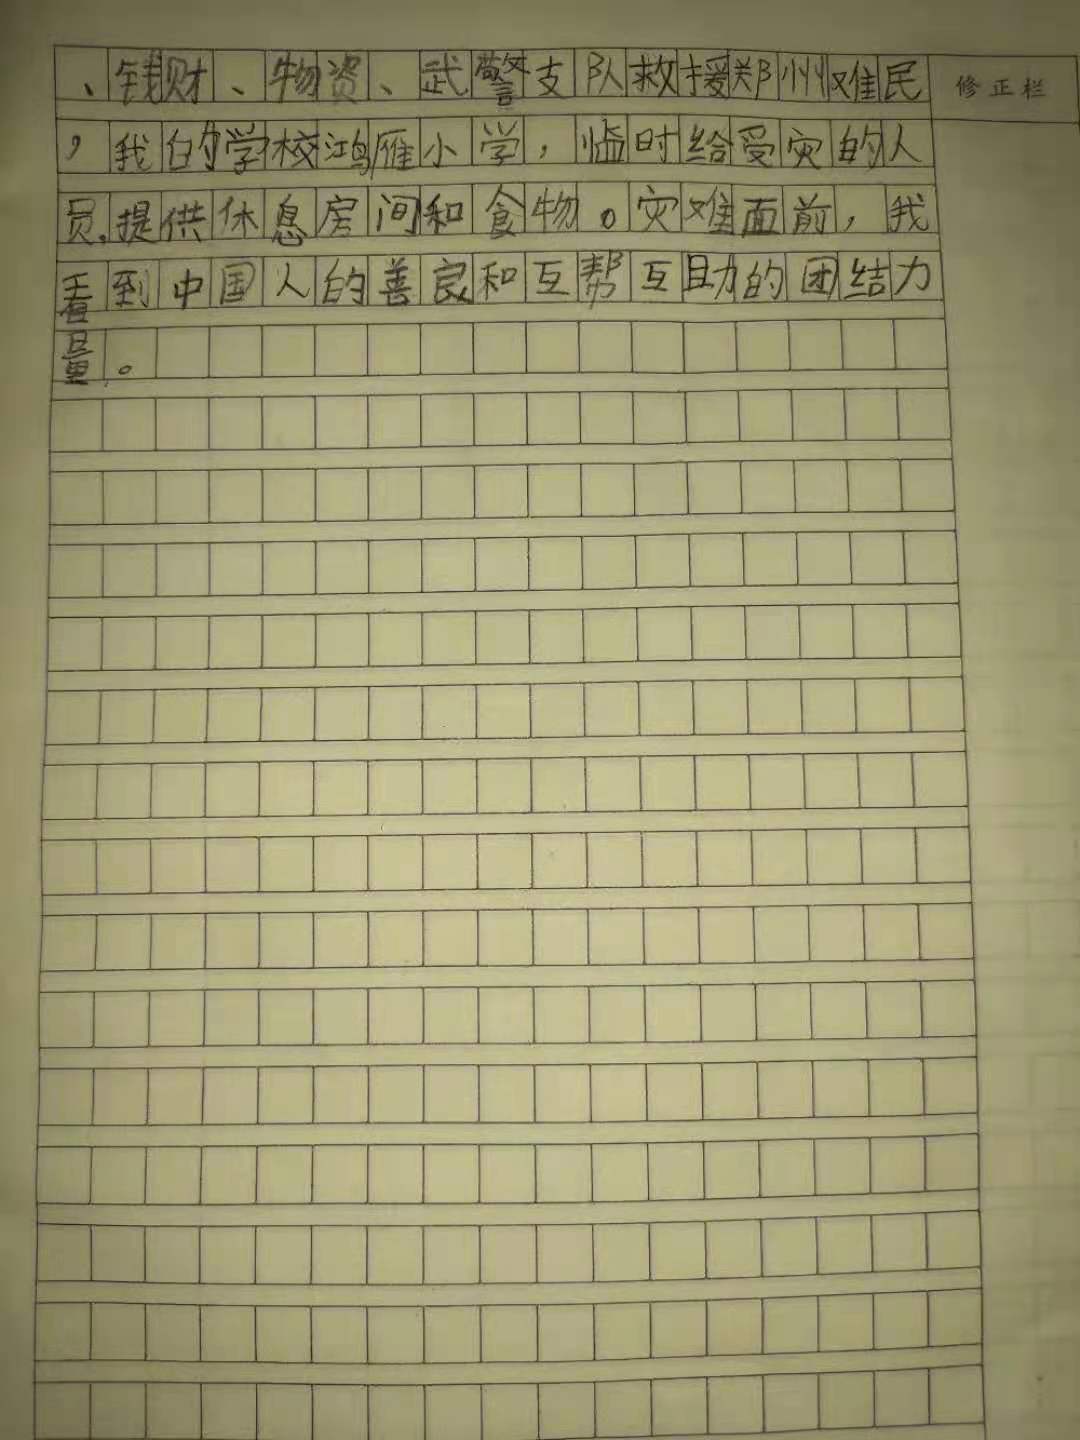 、钱财、物资、武警支队救援郑州难民
修正栏
，我的学校鸿雁小学，临时给受灾的人
员提供休息房间和食物。灾难面前，我
看到中国人的善良和互帮互助的团结力
量。